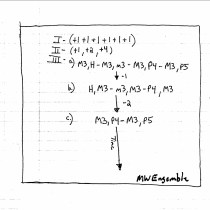 I - (+1+1+1+1+1+1)
II - (+1, +2, +4)
III - a) M3, H - M3, m3 - M3, P4 - M3, P5
-1
b) H, M3 - m3, M3 - P4, M3
-2
c) M3, P4 - M3, P5
Time
MWEnsemble